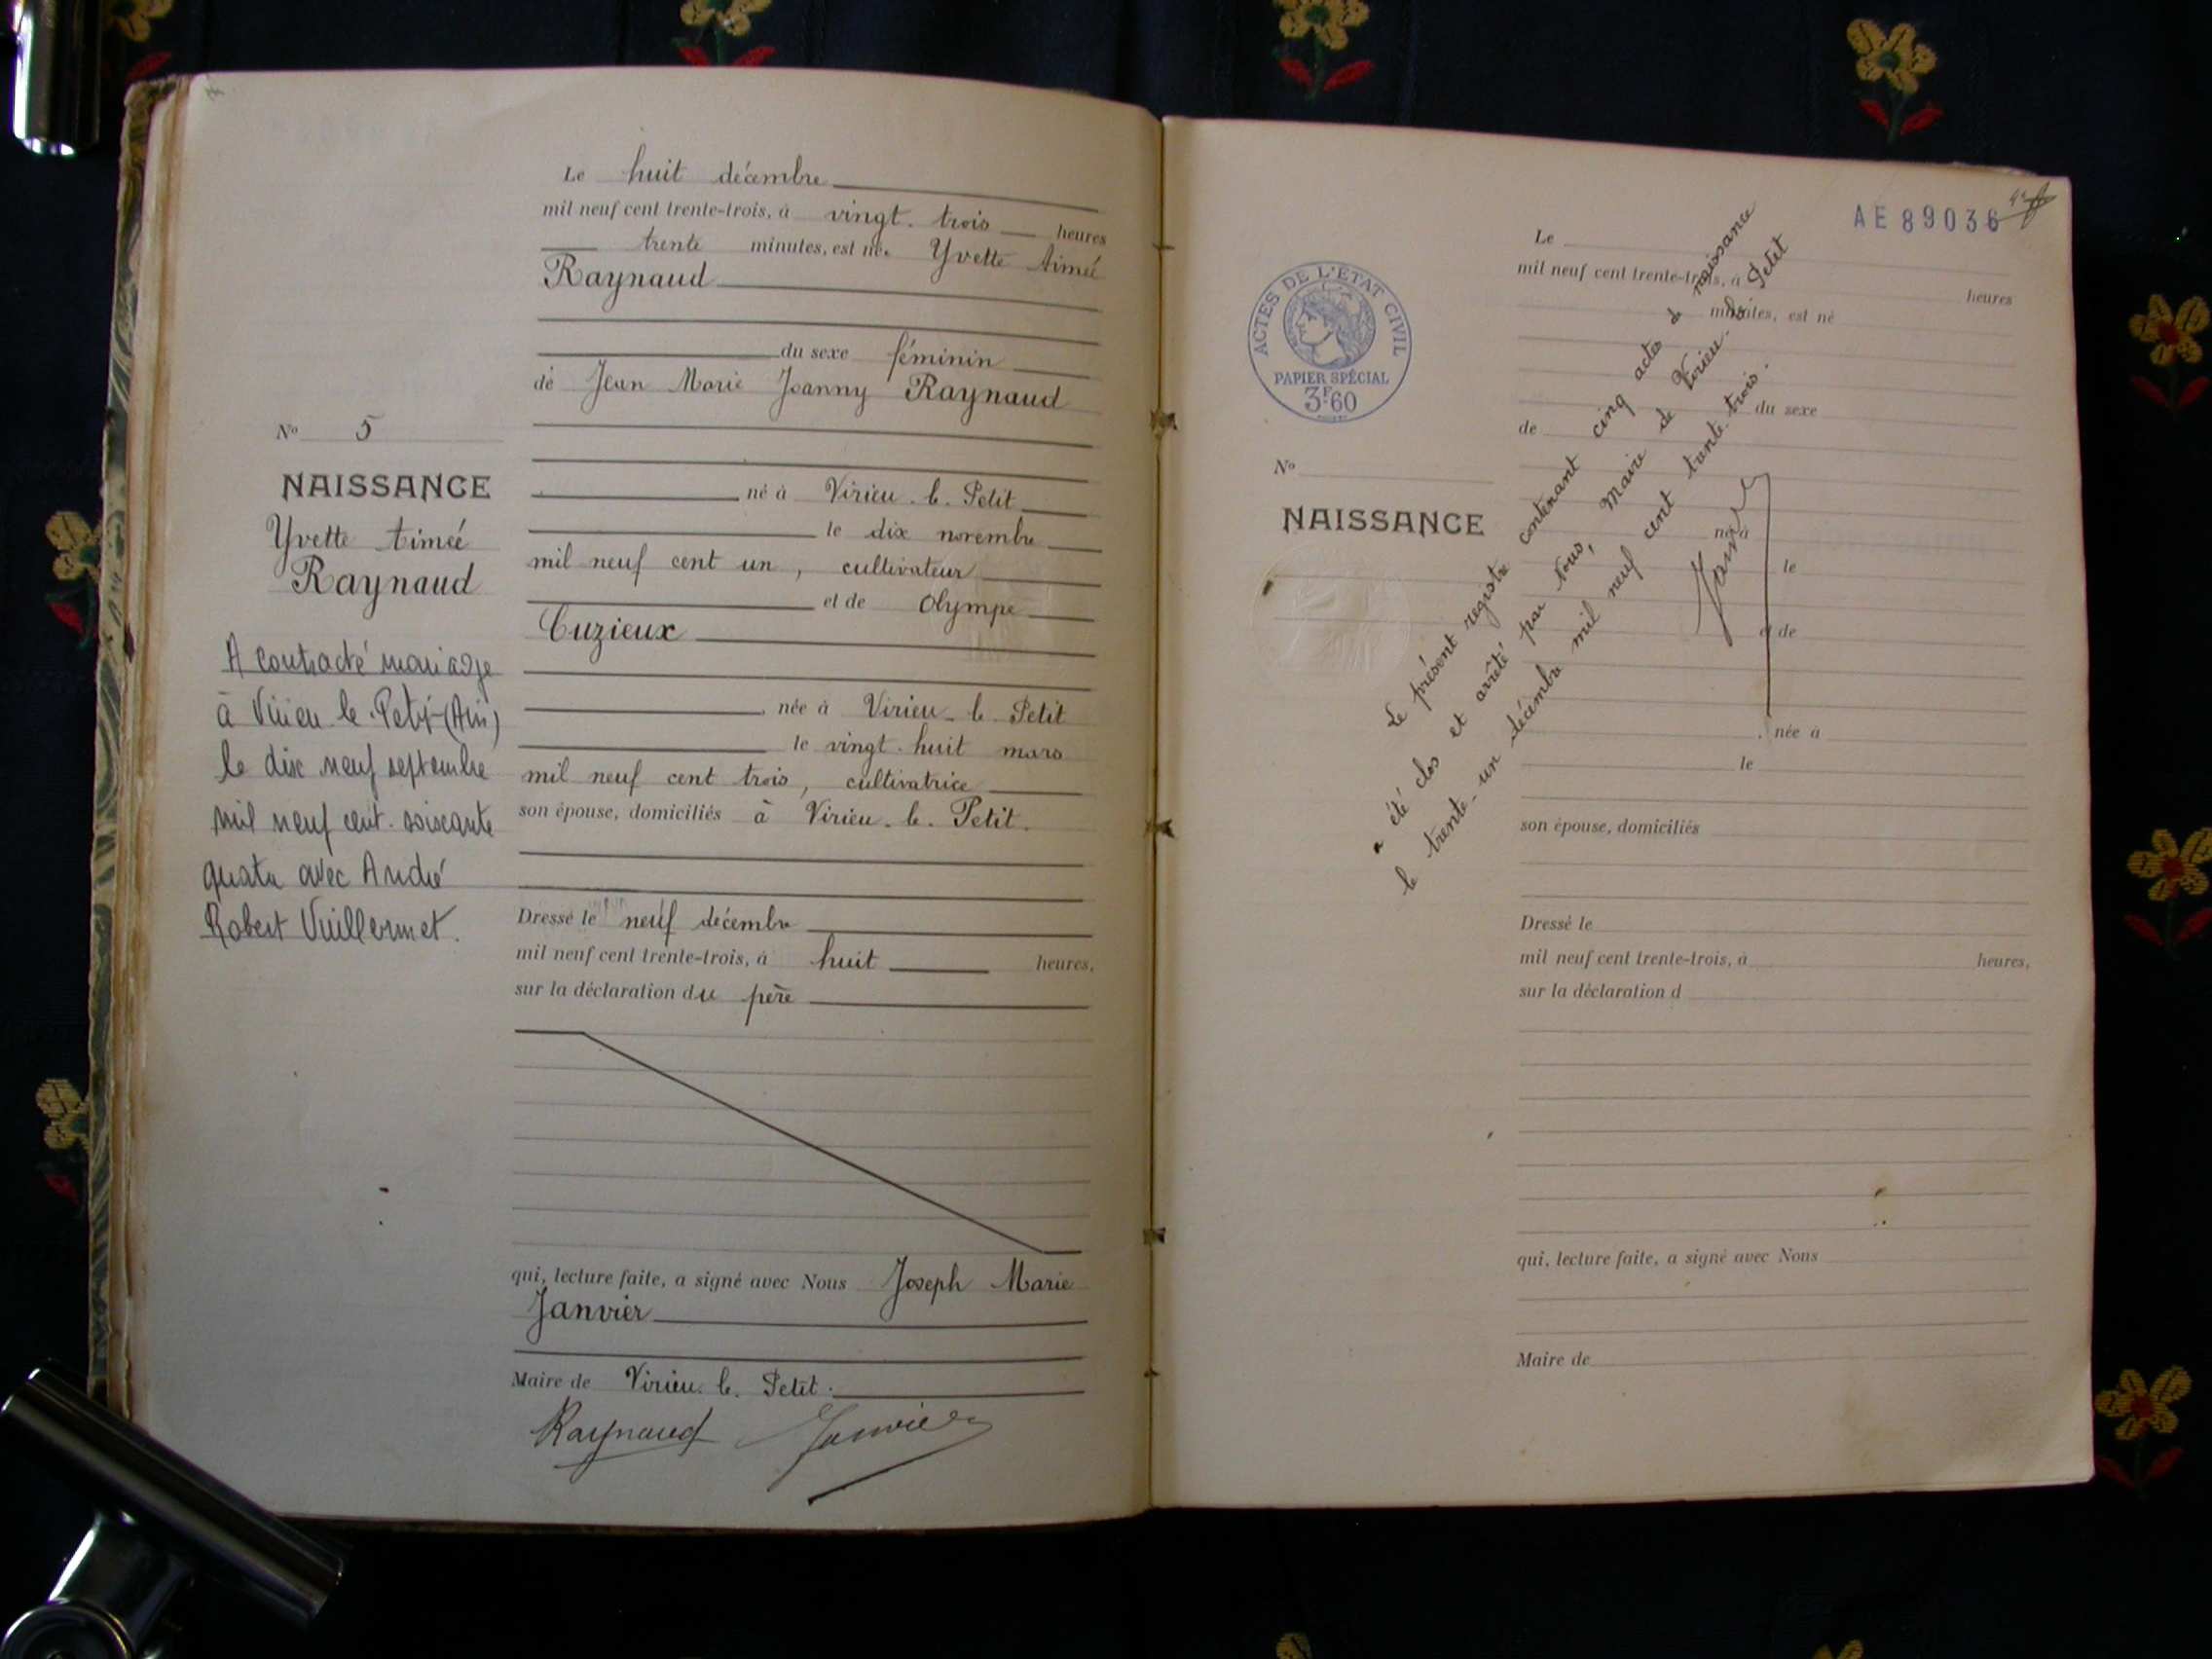 Le huit décembre
mil neuf cent trente-trois, à vingt-trois heures
trente minutes, est née Yvette Aimée
Raynaud
du sexe féminin
de Jean Marie Joanny Raynaud
né à Virieu-le-Petit
le dix novembre
mil neuf cent un, cultivateur
et de Olympe
Cuzieux
née à Virieu-le-Petit
le vingt-huit mars
mil neuf cent trois, cultivatrice
son épouse, domiciliés à Virieu-le-Petit.
Dressé le neuf décembre
mil neuf cent trente-trois, à huit heures,
sur la déclaration du père
qui, lecture faite, a signé avec Nous Joseph Marie
Janvier
Maire de Virieu-le-Petit.
Raynaud Janvier
N° 5
NAISSANCE
Yvette Aimée
Raynaud
A contracté mariage
à Virieu le-Petit-(Ain)
le dix neuf septembre
mil neuf cent-soixante
quatre avec André
Robert Vuillermet.
AE 89036
ACTES DE L'ÉTAT CIVIL
PAPIER SPÉCIAL
3F.60
N°
NAISSANCE
Le
mil neuf cent trente-trois, à
heures
minutes, est né
du sexe
de
né à
le
et de
née à
le
son épouse, domiciliés
Dressé le
mil neuf cent trente-trois, à heures,
sur la déclaration d
qui, lecture faite, a signé avec Nous
Maire de
Le présent registre contenant cinq actes de naissance
a été clos et arrêté par Nous, Maire de Virieu-le-Petit
le trente-un décembre mil neuf cent trente-trois.
Janvier